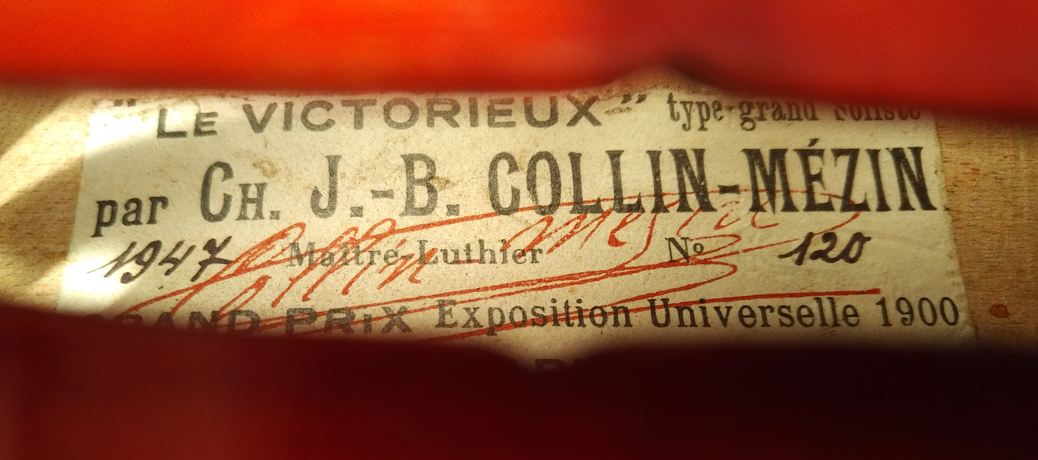 "LE VICTORIEUX" type grand soliste
par CH. J.-B. COLLIN-MÉZIN
1947 Maître-Luthier N° 120
Collin Mezin
GRAND PRIX Exposition Universelle 1900